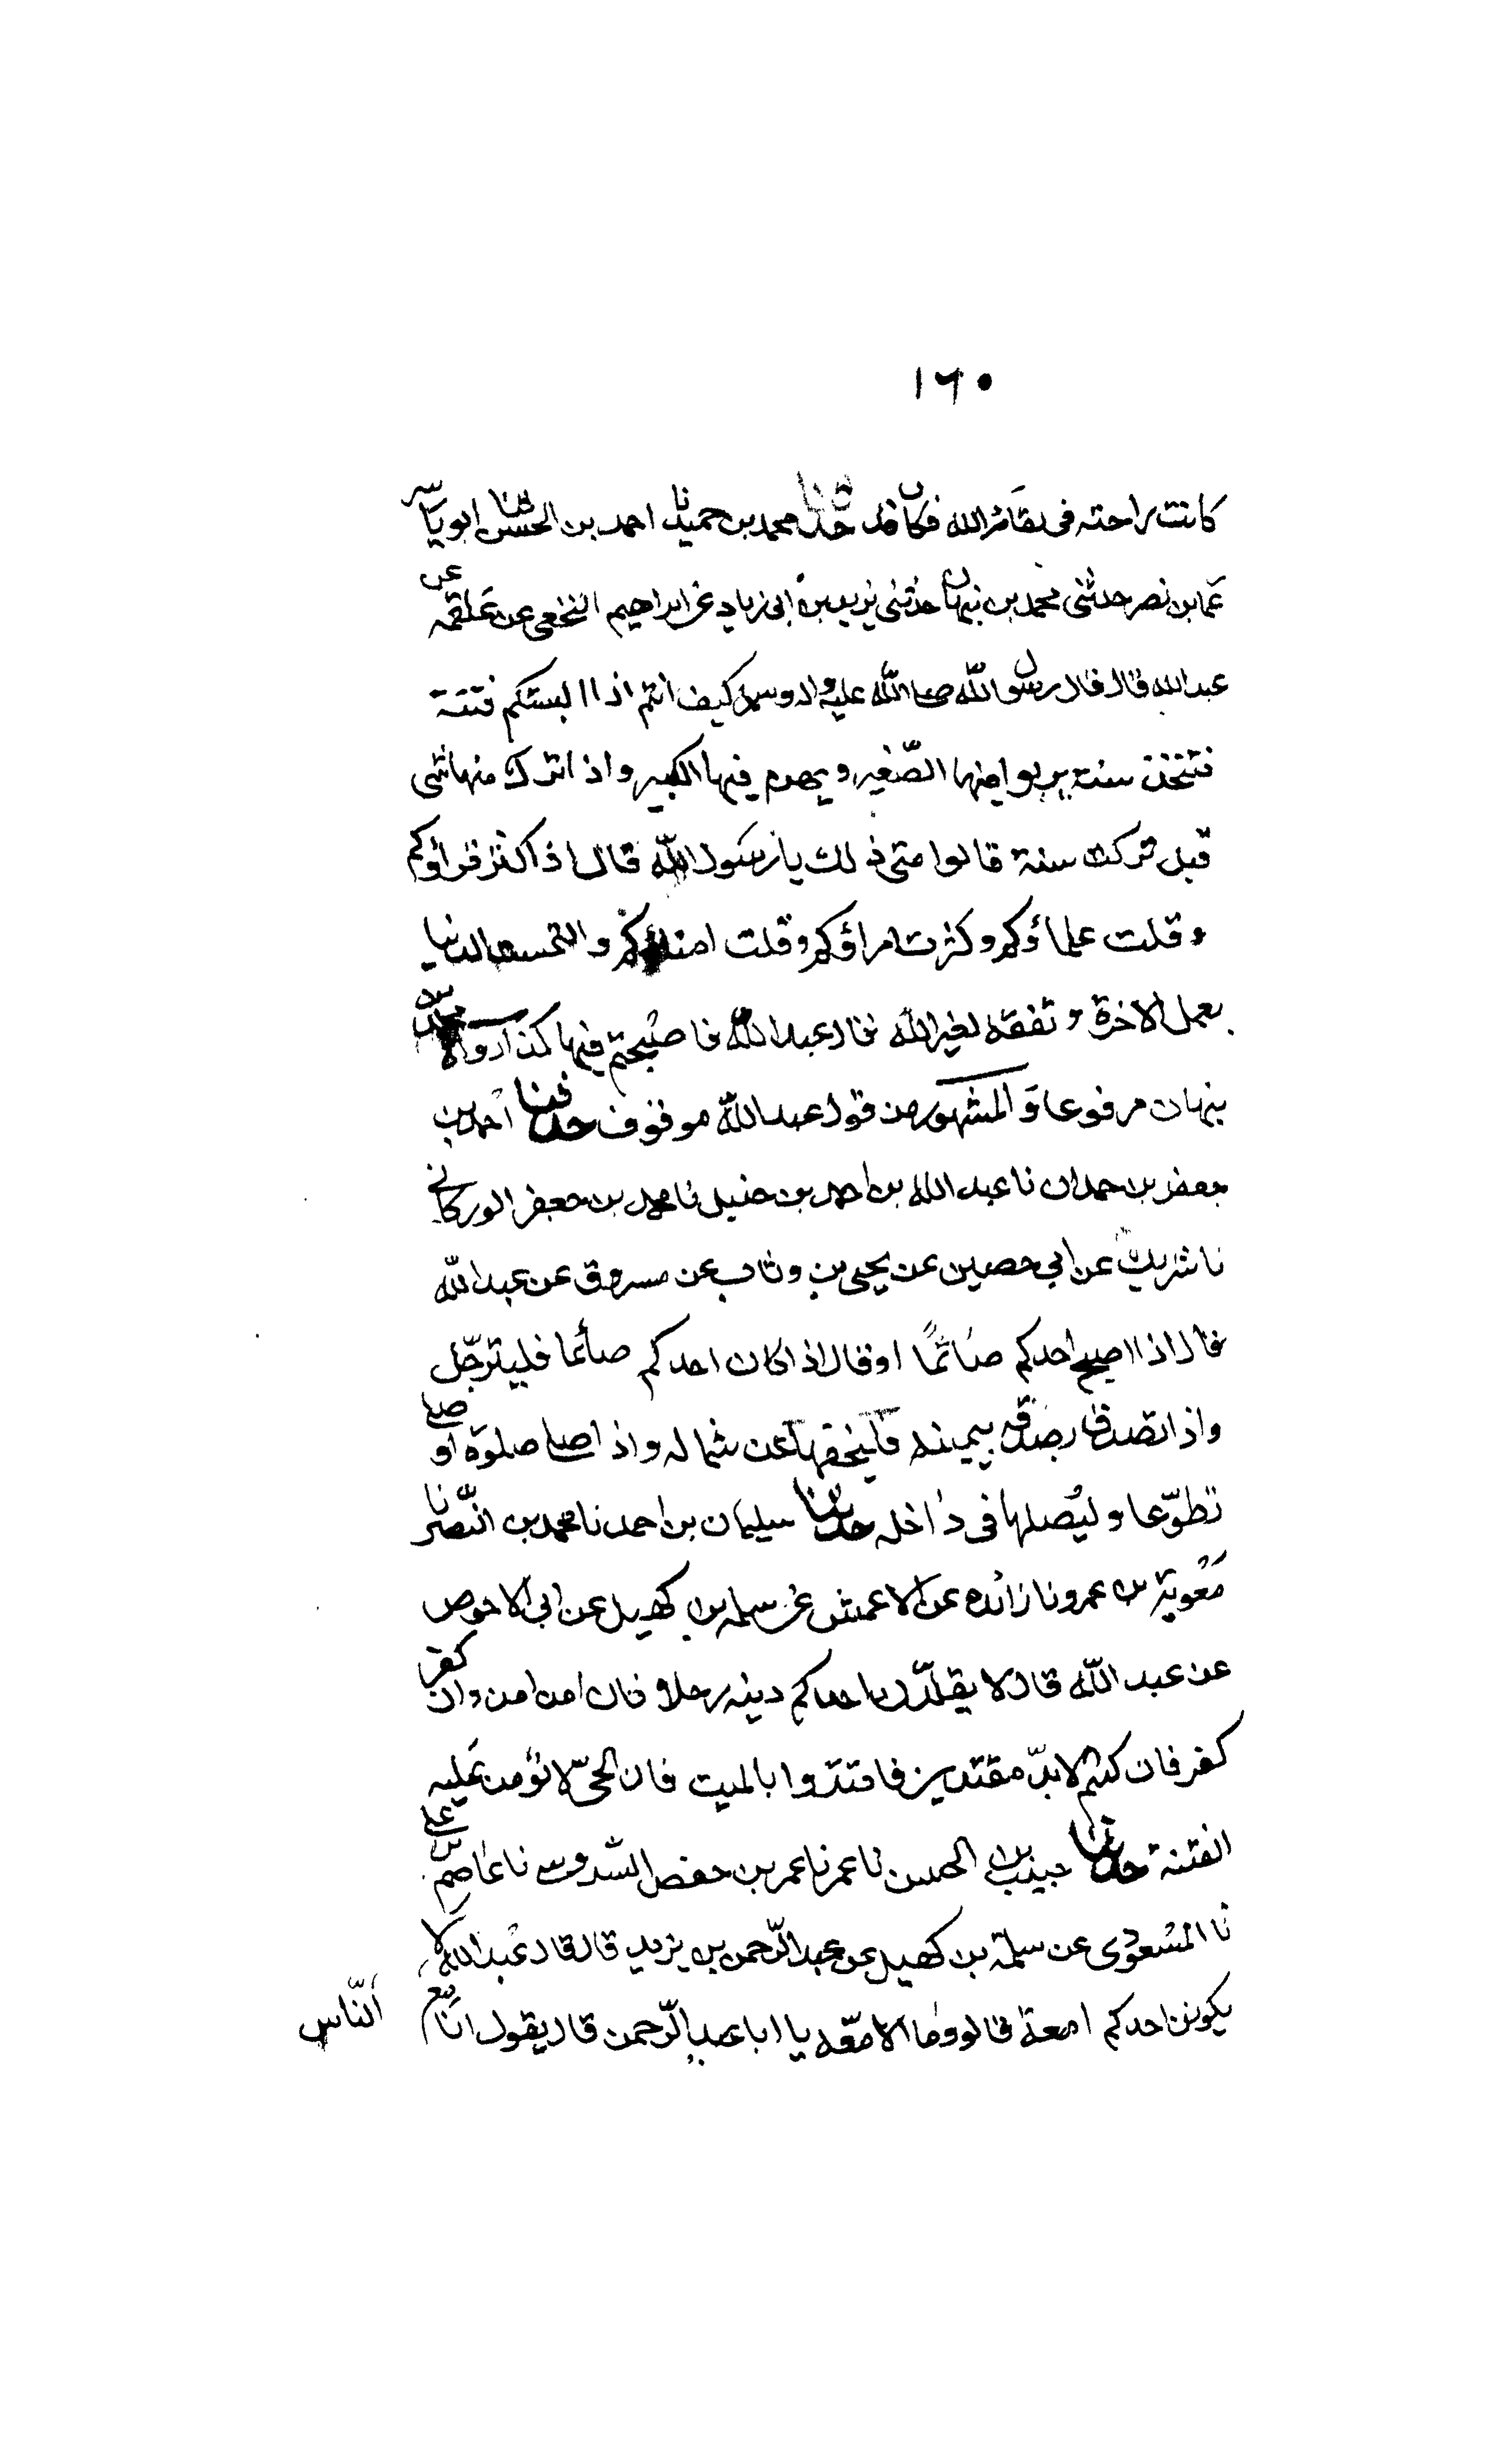 ١٦٠
كانت راحته في لقاء الله فكان قد حدثنا محمد بن حميد نا احمد بن الحسن ثنا ابو ياسر
عمار بن نصر حدثنى محمد بن نبهان حدثنى يزيد بن ابى زياد عن ابراهيم النخعى عن علقمه عن
عبد الله قال قال رسول الله صلى الله عليه واله وسلم كيف انتم اذا البستكم فتنة
فتتخذ سنة يربوا فيها الصّغير ويهرم فيها الكبير واذا ترك منها شى
قيل تركت سنة قالوا متى ذلك يا رسول الله قال اذا كثر قراؤكم
وقلت علماؤكم وكثرت امراؤكم وقلت امناؤكم والتمست الدنيا
بعمل الاخرة وتفقه لغير الله قال عبد الله فاصبحتم فيها كذا رواه محمد بن
نبهان مرفوعا والمشهور من قول عبد الله موقوف حدثنا احمد بن
جعفر بن حمدان نا عبد الله بن احمد بن حنبل نا محمد بن جعفر الوركانى
نا شريك عن ابي حصين عن يحيى بن وثاب عن مسروق عن عبد الله
قال اذا اصبح احدكم صائمًا او قال اذا كان احدكم صائما فليترجّل
واذا تصدق بصدقه بيمينه فليخفها عن شماله واذا صلى صلوة او صلى
تطوّعا وليصلها فى داخله حدثنا سليمان بن احمد نا محمد بن النّضر نا
معوية بن عمرو نا زائده عن الاعمش عن سلمه بن كهيل عن ابى الاحوص
عن عبد الله قال لا يقلّدن احدكم دينه رجلا فان امن امن وان كفر
كفر فان كنتم لابدّ مقتدين فاقتدوا بالميت فان الحىّ لا تؤمن عليه
الفتنة حدثنا حبيب بن الحسن نا عمر نا عمر بن حفص السّدوسى نا عاصم بن على
نا المسعودى عن سلمة بن كهيل عن عبد الرّحمن بن يزيد قال قال عبد الله لا
يكونن احدكم امعة قالوا وما الامّعه يا ابا عبد الرّحمن قال يقول انا مع
النّاس